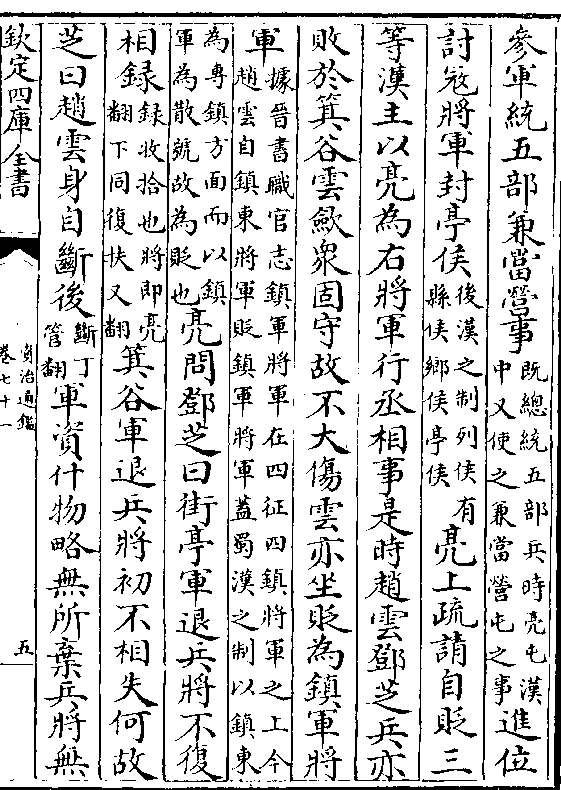 參軍統五部兼當營事既總統五部兵時亮屯漢中又使之兼當營屯之事進位
討冦將軍封亭侯後漢之制列侯有縣侯鄉侯亭侯亮上疏請自貶三
等漢主以亮為右將軍行丞相事是時趙雲鄧芝兵亦
敗於箕谷雲歛衆固守故不大傷雲亦坐貶為鎮軍將
軍據晉書職官志鎮軍將軍在四征四鎮將軍之上今趙雲自鎮東將軍貶鎮軍將軍蓋蜀漢之制以鎮東
為專鎮方面而以鎮軍為散號故為貶也亮問鄧芝曰街亭軍退兵將不復
相録録收拾也將即亮翻下同復扶又翻箕谷軍退兵將初不相失何故
芝曰趙雲身自斷後斷丁管翻軍資什物略無所棄兵將無
欽定四庫全書
資治通鑑
卷七十一
五